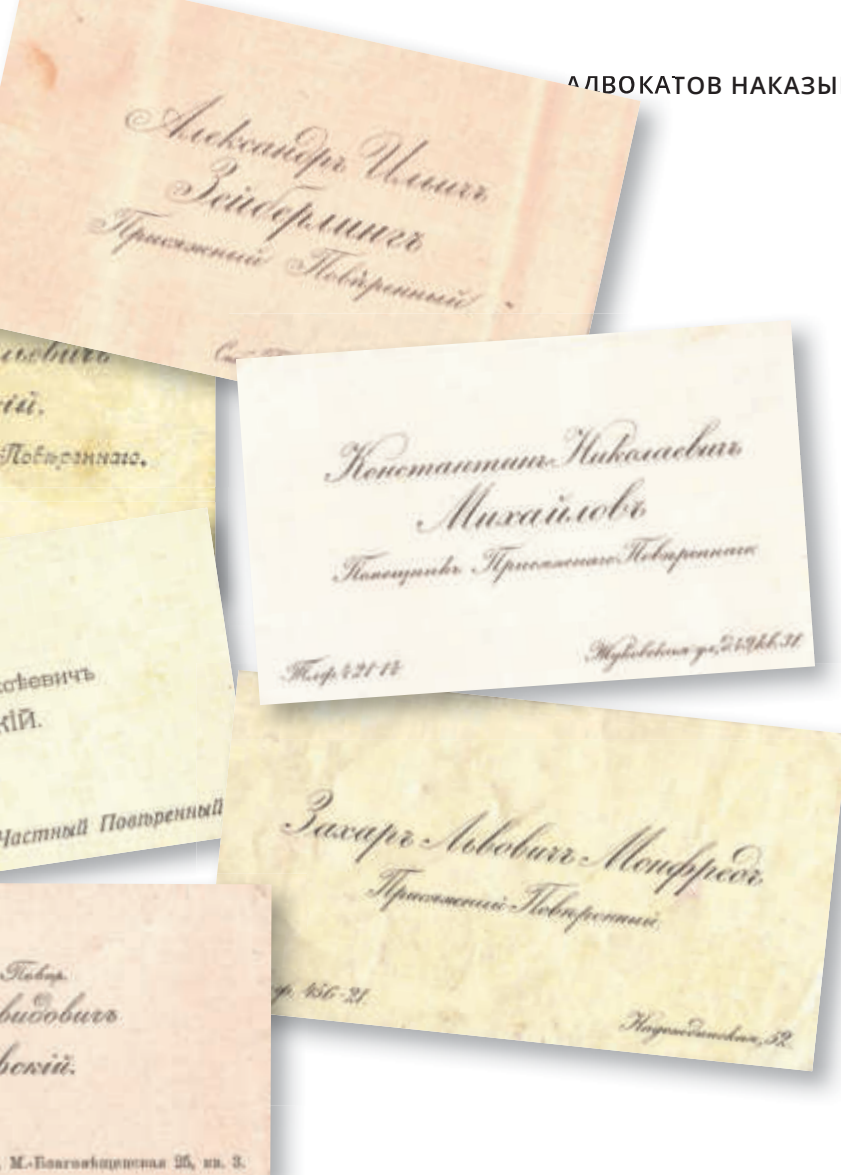 АДВОКАТОВ НАКАЗЫ
Александръ Ильичъ
Зейберлингъ
Присяжный Повѣренный
ьевичъ
ій.
Повѣреннаго.
Константинъ Николаевичъ
Михайловъ
Помощникъ Присяжнаго Повѣреннаго
Тлф. 421-14
Жуковская ул., д. 49, кв. 31.
ѣевичъ
КІЙ.
Частный Повѣренный
Захаръ Львовичъ Монфредъ
Присяжный Повѣренный.
ф. 456-21.
Надеждинская, 52.
Повѣр.
видовичъ
вскій.
М.-Благовѣщенская 25, кв. 3.